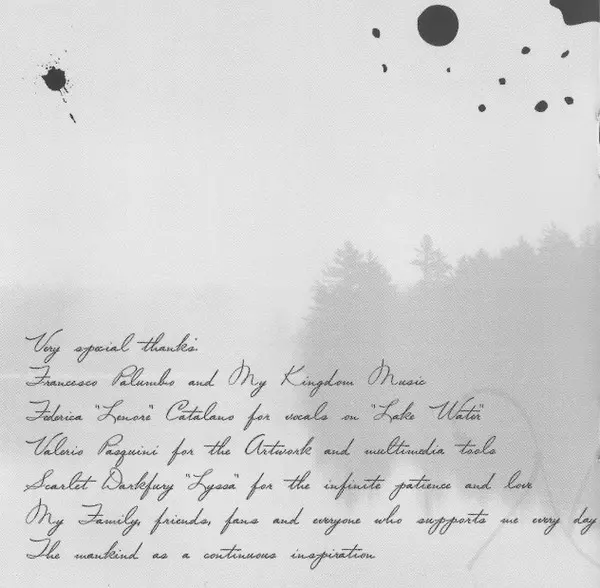 Very special thanks:
Francesco Palumbo and My Kingdom Music
Federica "Lenore" Catalano for vocals on "Lake Water"
Valerio Pasquini for the Artwork and multimedia tools
Scarlet Darkfury "Lyssa" for the infinite patience and love
My Family, friends, fans and everyone who supports me every day
The mankind as a continuous inspiration